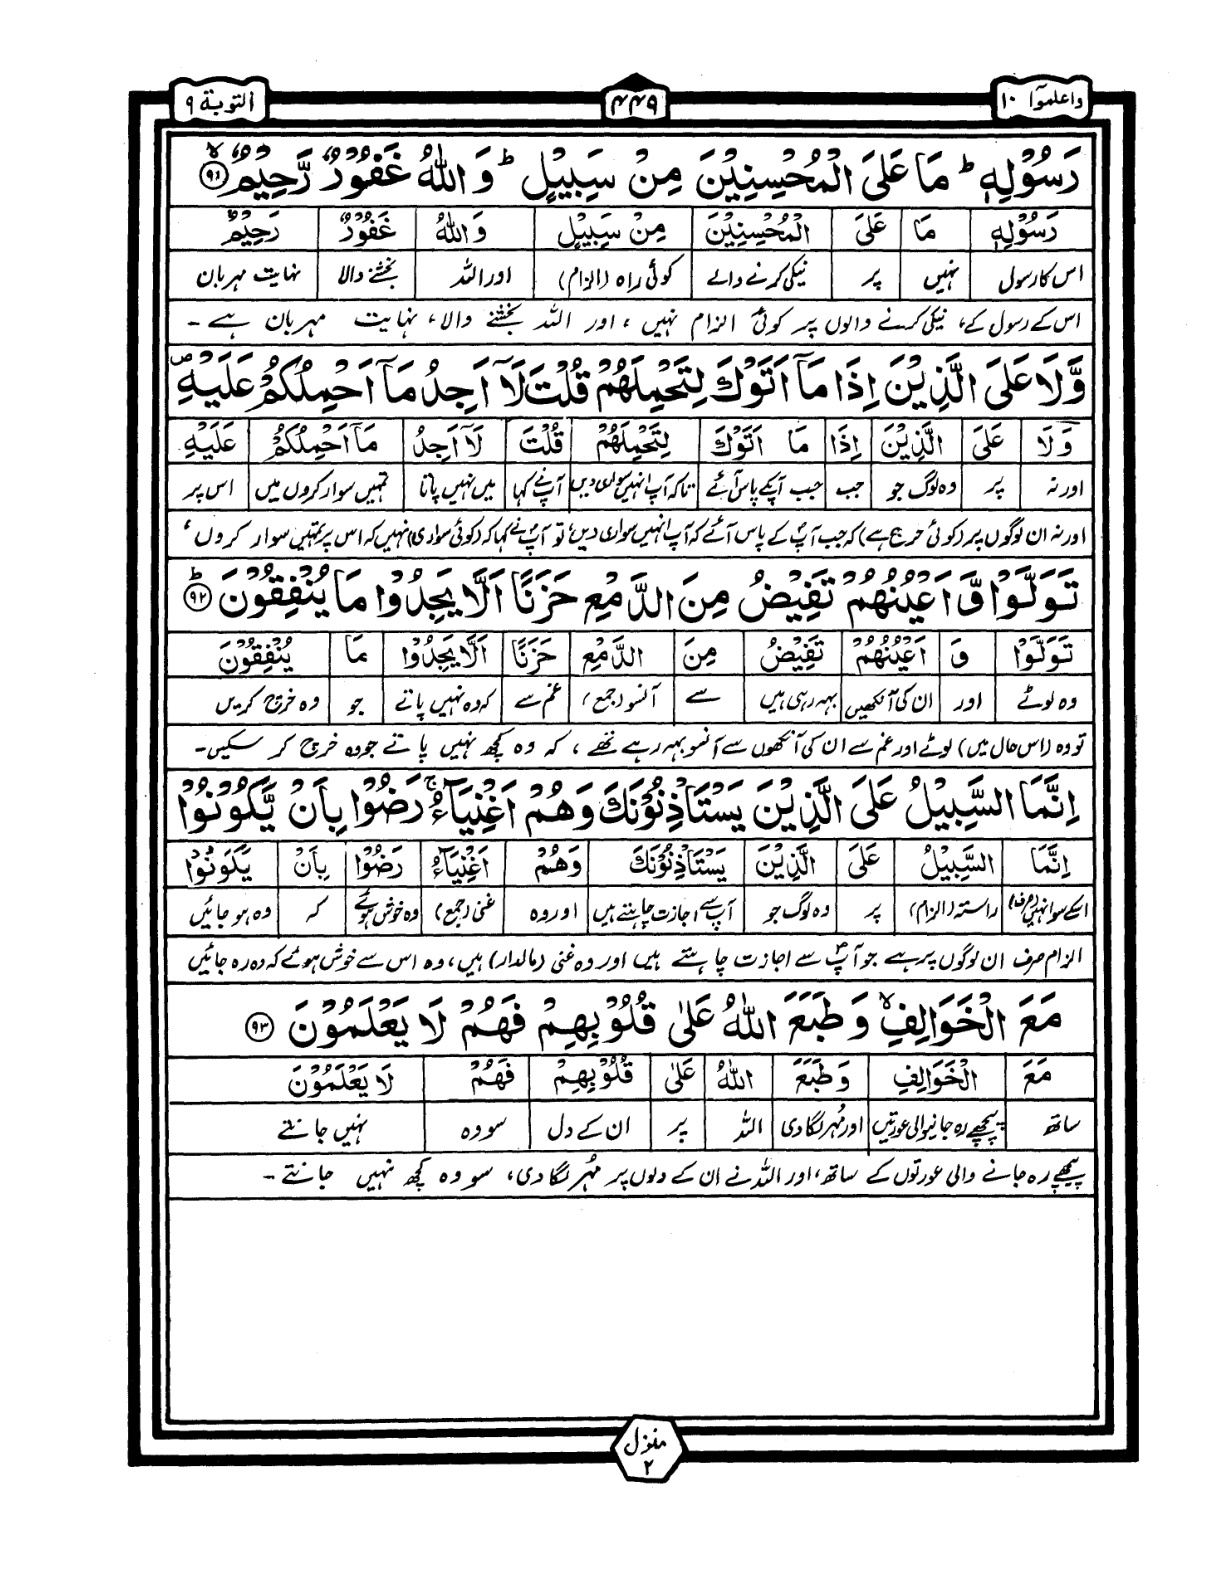 واعلموآ ۱۰
۴۴۹
التوبة ۹
رَسُوْلِهٖ ؕ مَا عَلَى الْمُحْسِنِيْنَ مِنْ سَبِيْلٍ ؕ وَاللّٰهُ غَفُوْرٌ رَّحِيْمٌ ۙ ﴿۹۱﴾
رَسُوْلِهٖ مَا عَلَى الْمُحْسِنِيْنَ مِنْ سَبِيْلٍ وَاللّٰهُ غَفُوْرٌ رَحِيْمٌ
اس کا رسول نہیں پر نیکی کرنے والے کوئی راہ (الزام) اور اللہ بخشنے والا نہایت مہربان
اس کے رسول کے، نیکی کرنے والوں پر کوئی الزام نہیں، اور اللہ بخشنے والا، نہایت مہربان ہے۔
وَّلَا عَلَى الَّذِيْنَ اِذَا مَآ اَتَوْكَ لِتَحْمِلَهُمْ قُلْتَ لَآ اَجِدُ مَآ اَحْمِلُكُمْ عَلَيْهِ ۪
وَلَا عَلَى الَّذِيْنَ اِذَا مَا اَتَوْكَ لِتَحْمِلَهُمْ قُلْتَ لَآ اَجِدُ مَآ اَحْمِلُكُمْ عَلَيْهِ
اور نہ پر وہ لوگ جو جب جب آپکے پاس آئے تاکہ آپ انہیں سواری دیں آپ نے کہا میں نہیں پاتا تمہیں سوار کروں میں اس پر
اور نہ ان لوگوں پر (کوئی حرج ہے) کہ جب آپؐ کے پاس آئے کہ آپ انہیں سواری دیں، تو آپؐ نے کہا کہ (کوئی سواری) نہیں کہ اس پر تمہیں سوار کروں،
تَوَلَّوْا وَّاَعْيُنُهُمْ تَفِيْضُ مِنَ الدَّمْعِ حَزَنًا اَلَّا يَجِدُوْا مَا يُنْفِقُوْنَ ؕ ﴿۹۲﴾
تَوَلَّوْا وَ اَعْيُنُهُمْ تَفِيْضُ مِنَ الدَّمْعِ حَزَنًا اَلَّا يَجِدُوْا مَا يُنْفِقُوْنَ
وہ لوٹے اور ان کی آنکھیں بہہ رہی ہیں سے آنسو (جمع) غم سے کہ وہ نہیں پاتے جو وہ خرچ کریں
تو وہ (اس حال میں) لوٹے اور غم سے ان کی آنکھوں سے آنسو بہہ رہے تھے، کہ وہ کچھ نہیں پاتے جو وہ خرچ کر سکیں۔
اِنَّمَا السَّبِيْلُ عَلَى الَّذِيْنَ يَسْتَاْذِنُوْنَكَ وَهُمْ اَغْنِيَآءُ ۚ رَضُوْا بِاَنْ يَّكُوْنُوْا
اِنَّمَا السَّبِيْلُ عَلَى الَّذِيْنَ يَسْتَاْذِنُوْنَكَ وَهُمْ اَغْنِيَآءُ رَضُوْا بِاَنْ يَكُوْنُوْا
اسکے سوا نہیں (صرف) راستہ (الزام) پر وہ لوگ جو آپ سے اجازت چاہتے ہیں اور وہ غنی (جمع) وہ خوش ہوئے کہ وہ ہو جائیں
الزام صرف ان لوگوں پر ہے جو آپؐ سے اجازت چاہتے ہیں اور وہ غنی (مالدار) ہیں، وہ اس سے خوش ہوئے کہ وہ رہ جائیں
مَعَ الْخَوَالِفِ ۙ وَطَبَعَ اللّٰهُ عَلٰى قُلُوْبِهِمْ فَهُمْ لَا يَعْلَمُوْنَ ﴿۹۳﴾
مَعَ الْخَوَالِفِ وَطَبَعَ اللّٰهُ عَلٰى قُلُوْبِهِمْ فَهُمْ لَا يَعْلَمُوْنَ
ساتھ پیچھے رہ جانیوالی عورتیں اور مُہر لگا دی اللہ پر ان کے دل سو وہ نہیں جانتے
پیچھے رہ جانے والی عورتوں کے ساتھ، اور اللہ نے ان کے دلوں پر مُہر لگا دی، سو وہ کچھ نہیں جانتے۔
منزل
۲